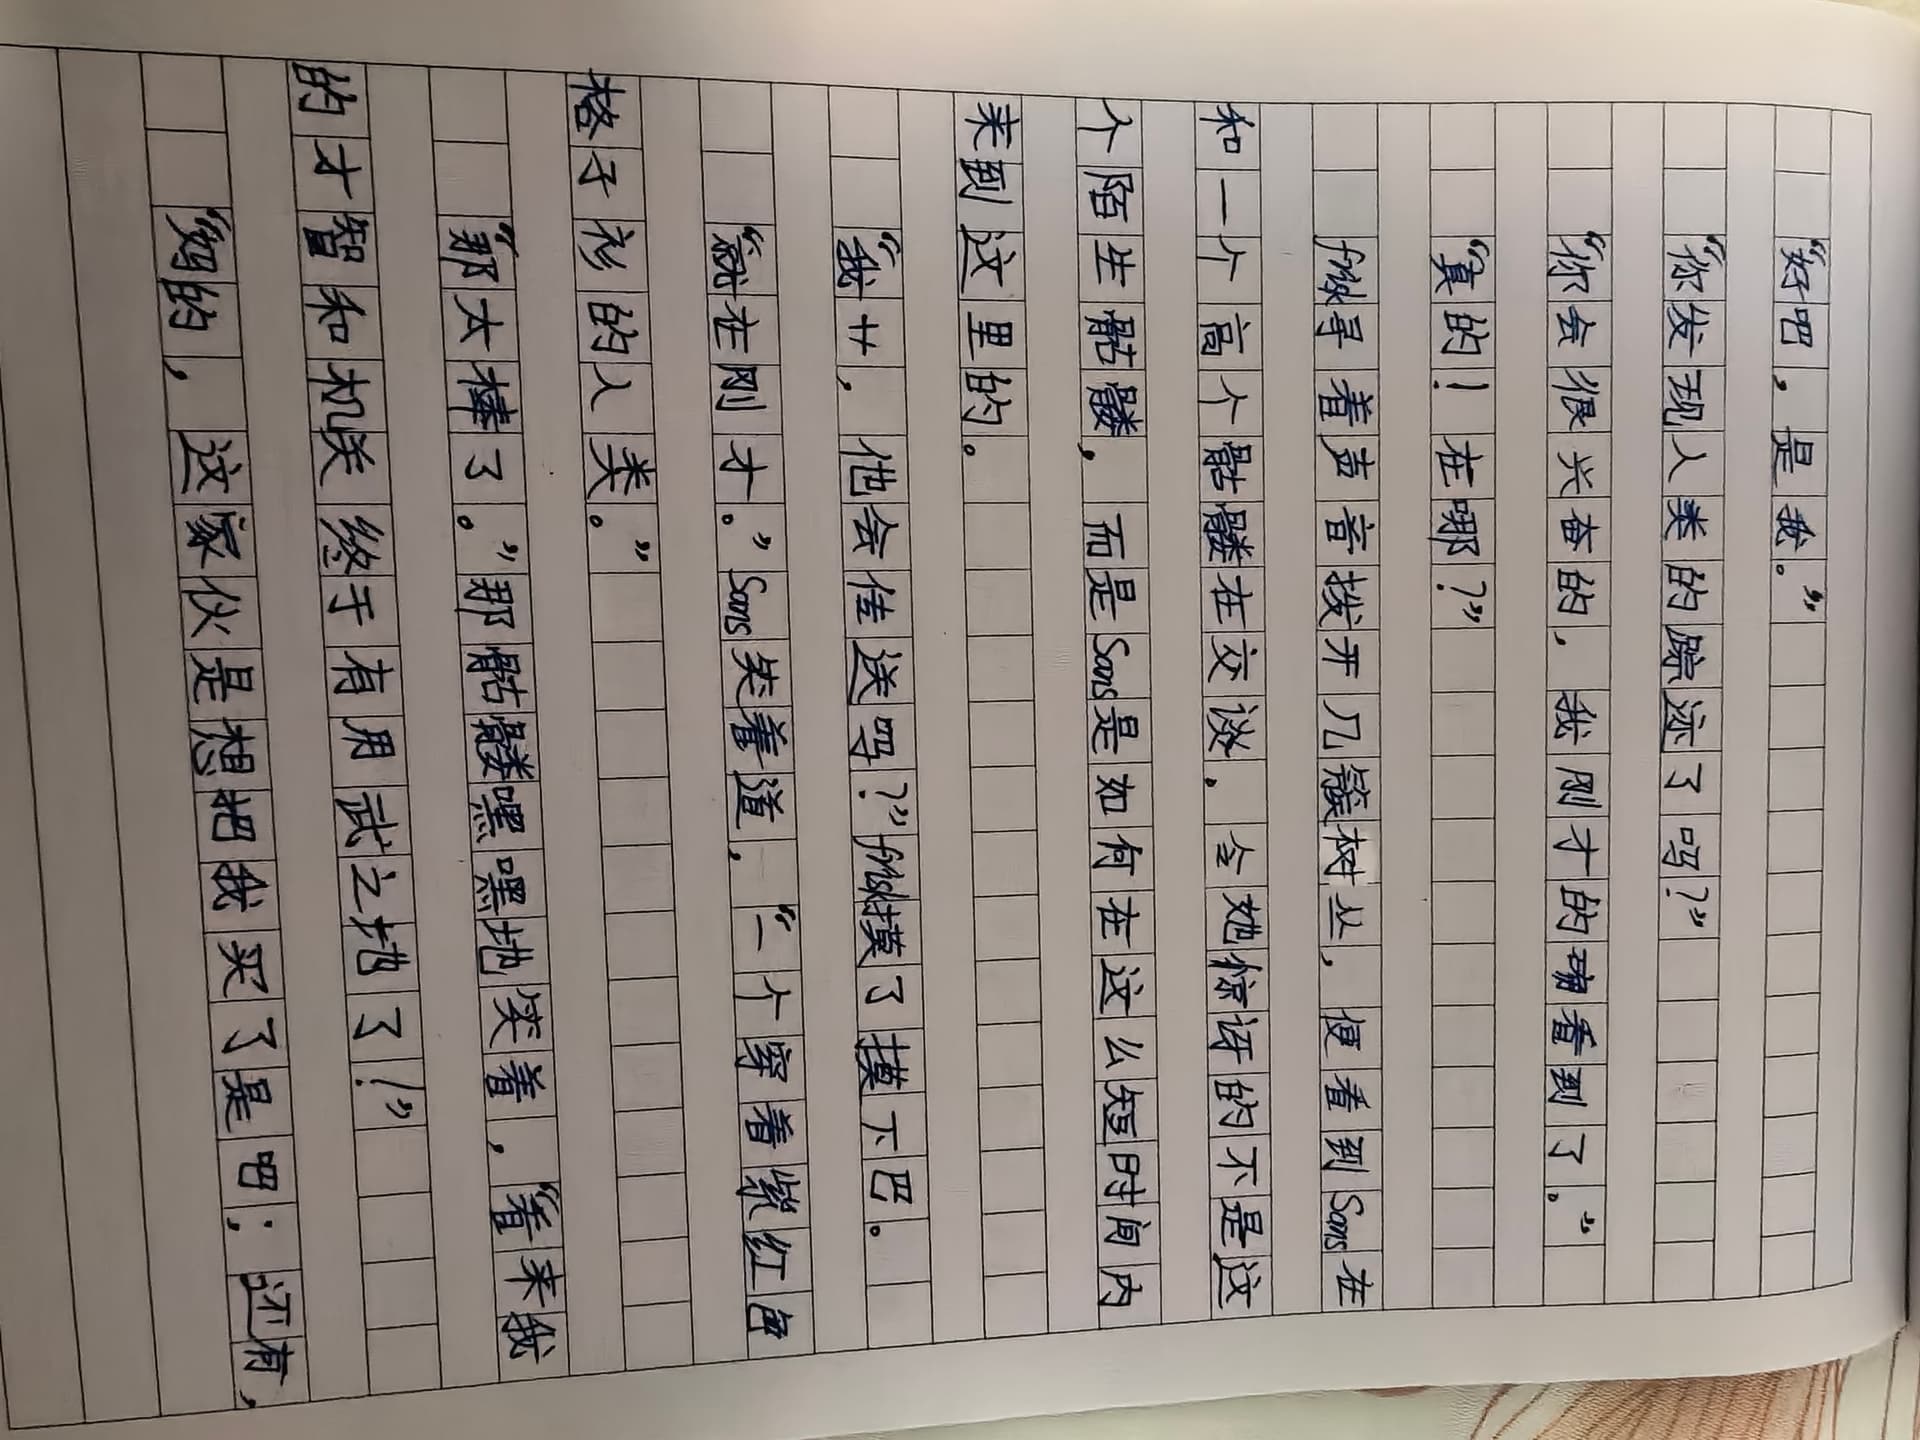 “好吧，是我。”
“你发现人类的踪迹了吗？”
“你会很兴奋的，我刚才的确看到了。”
“真的！在哪？”
frisk寻着声音拨开几簇树丛，便看到Sans在
和一个高个骷髅在交谈。令她惊讶的不是这
个陌生骷髅，而是Sans是如何在这么短时间内
来到这里的。
“我艹，他会传送吗？”frisk摸了摸下巴。
“就在刚才。”Sans笑着道，“一个穿着紫红色
格子衫的人类。”
“那太棒了。”那骷髅嘿嘿地笑着，“看来我
的才智和机关终于有用武之地了！”
“妈的，这家伙是想把我买了是吧；还有，